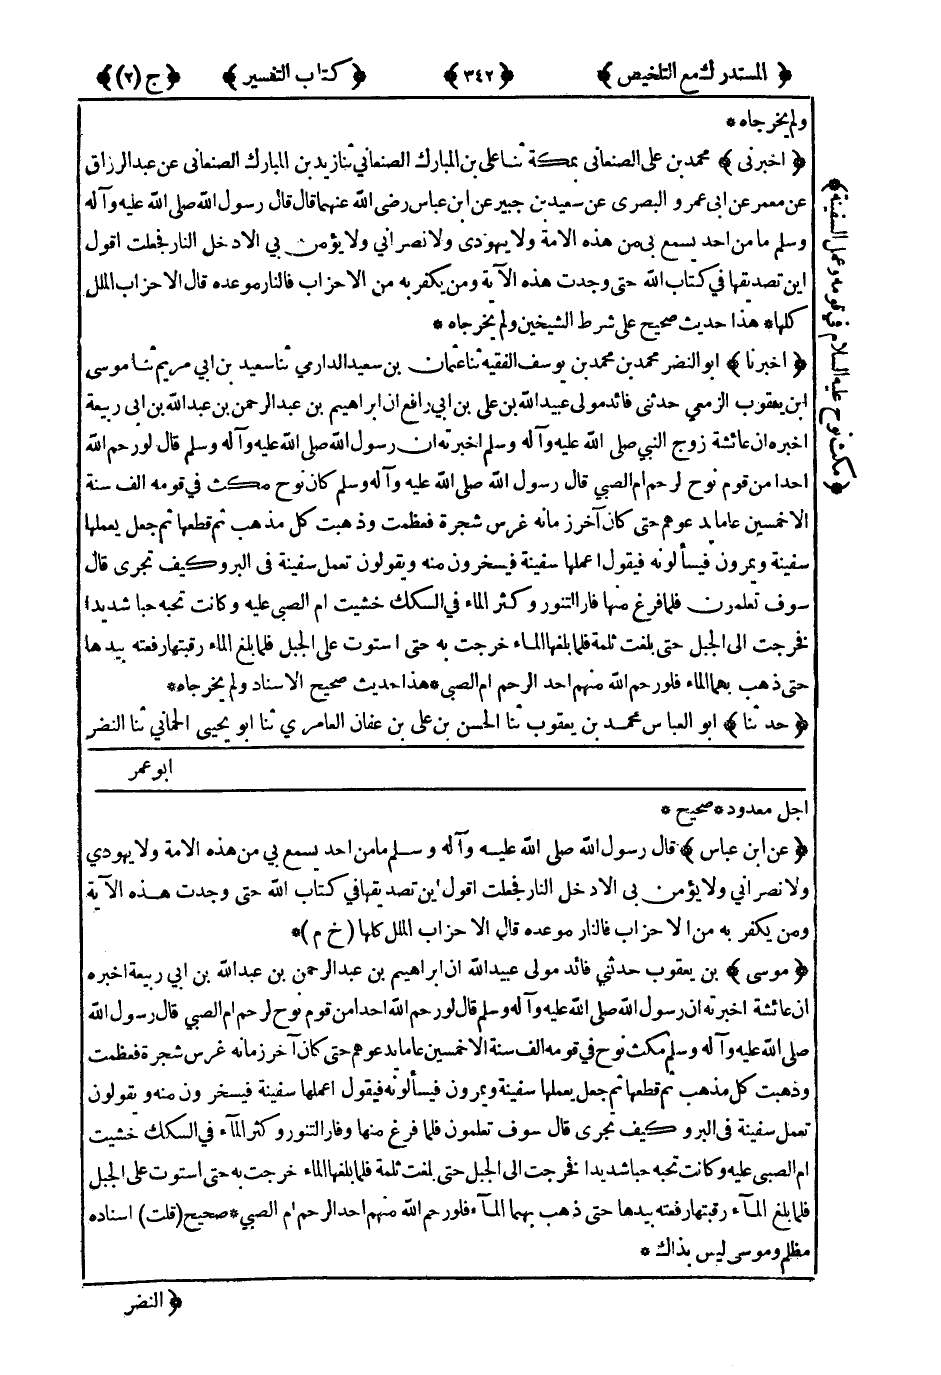 ﴿ المستدرك مع التلخيص ﴾ ﴿ ٣٤٢ ﴾ ﴿ كتاب التفسير ﴾ ﴿ ج (٢) ﴾
ولم يخرجاه *
﴿ اخبرنى ﴾ محمد بن على الصنعانى بمكة ثنا على بن المبارك الصنعاني ثنا زيد بن المبارك الصنعانى عن عبد الرزاق
عن معمر عن ابى عمرو البصرى عن سعيد بن جبير عن ابن عباس رضى الله عنهما قال قال رسول الله صلى الله عليه وآله
وسلم ما من احد يسمع بى من هذه الامة ولا يهودى ولا نصراني ولا يؤمن بي الا دخل النار فجعلت اقول
اين تصديقها في كتاب الله حتى وجدت هذه الآية ومن يكفر به من الاحزاب فالنار موعده قال الاحزاب الملل
كلها * هذا حديث صحيح على شرط الشيخين ولم يخرجاه *
﴿ اخبرنا ﴾ ابو النضر محمد بن محمد بن يوسف الفقيه ثنا عثمان بن سعيد الدارمي ثنا سعيد بن ابي مريم ثنا موسى
ابن يعقوب الزمعي حدثنى فائد مولى عبيد الله بن على بن ابي رافع ان ابراهيم بن عبد الرحمن بن عبد الله بن ابى ربيعة
اخبره ان عائشة زوج النبي صلى الله عليه وآله وسلم اخبرته ان رسول الله صلى الله عليه وآله وسلم قال لو رحم الله
احدا من قوم نوح لرحم ام الصبي قال رسول الله صلى الله عليه وآله وسلم كان نوح مكث في قومه الف سنة
الا خمسين عاما يدعوهم حتى كان آخر زمانه غرس شجرة فعظمت وذهبت كل مذهب ثم قطعها ثم جعل يعملها
سفينة ويمرون فيسألونه فيقول اعملها سفينة فيسخرون منه ويقولون تعمل سفينة فى البر وكيف تجرى قال
سوف تعلمون فلما فرغ منها فار التنور وكثر الماء في السكك خشيت ام الصبى عليه وكانت تحبه حبا شديدا
فخرجت الى الجبل حتى بلغت ثلثه فلما بلغها الماء خرجت به حتى استوت على الجبل فلما بلغ الماء رقبتها رفعته بيدها
حتى ذهب بهما الماء فلو رحم الله منهم احد الرحم ام الصبي * هذا حديث صحيح الاسناد ولم يخرجاه *
﴿ حدثنا ﴾ ابو العباس محمد بن يعقوب ثنا الحسن بن على بن عفان العامري ثنا ابو يحيى الحماني ثنا النضر
ابو عمر
﴿ مكث نوح عليه السلام في قومه وعمل السفينة ﴾
اجل معدود * صحيح *
﴿ عن ابن عباس ﴾ قال رسول الله صلى الله عليه وآله وسلم ما من احد يسمع بي من هذه الامة ولا يهودي
ولا نصراني ولا يؤمن بى الا دخل النار فجعلت اقول اين تصديقها في كتاب الله حتى وجدت هذه الآية
ومن يكفر به من الاحزاب فالنار موعده قال الاحزاب الملل كلها ( خ م ) *
﴿ موسى ﴾ بن يعقوب حدثني فائد مولى عبيد الله ان ابراهيم بن عبد الرحمن بن عبد الله بن ابي ربيعة اخبره
ان عائشة اخبرته ان رسول الله صلى الله عليه وآله وسلم قال لو رحم الله احدا من قوم نوح لرحم ام الصبي قال رسول الله
صلى الله عليه وآله وسلم مكث نوح في قومه الف سنة الا خمسين عاما يدعوهم حتى كان آخر زمانه غرس شجرة فعظمت
وذهبت كل مذهب ثم قطعها ثم جعل يعملها سفينة ويمرون فيسألونه فيقول اعملها سفينة فيسخرون منه ويقولون
تعمل سفينة فى البر وكيف تجرى قال سوف تعلمون فلما فرغ منها وفار التنور وكثر المآء في السكك خشيت
ام الصبى عليه وكانت تحبه حبا شديدا فخرجت الى الجبل حتى بلغت ثلثه فلما بلغها الماء خرجت به حتى استوت على الجبل
فلما بلغ المآء رقبتها رفعته بيدها حتى ذهب بهما المآء فلو رحم الله منهم احد الرحم ام الصبي * صحيح (قلت) اسناده
مظلم وموسى ليس بذاك *
﴿ النضر